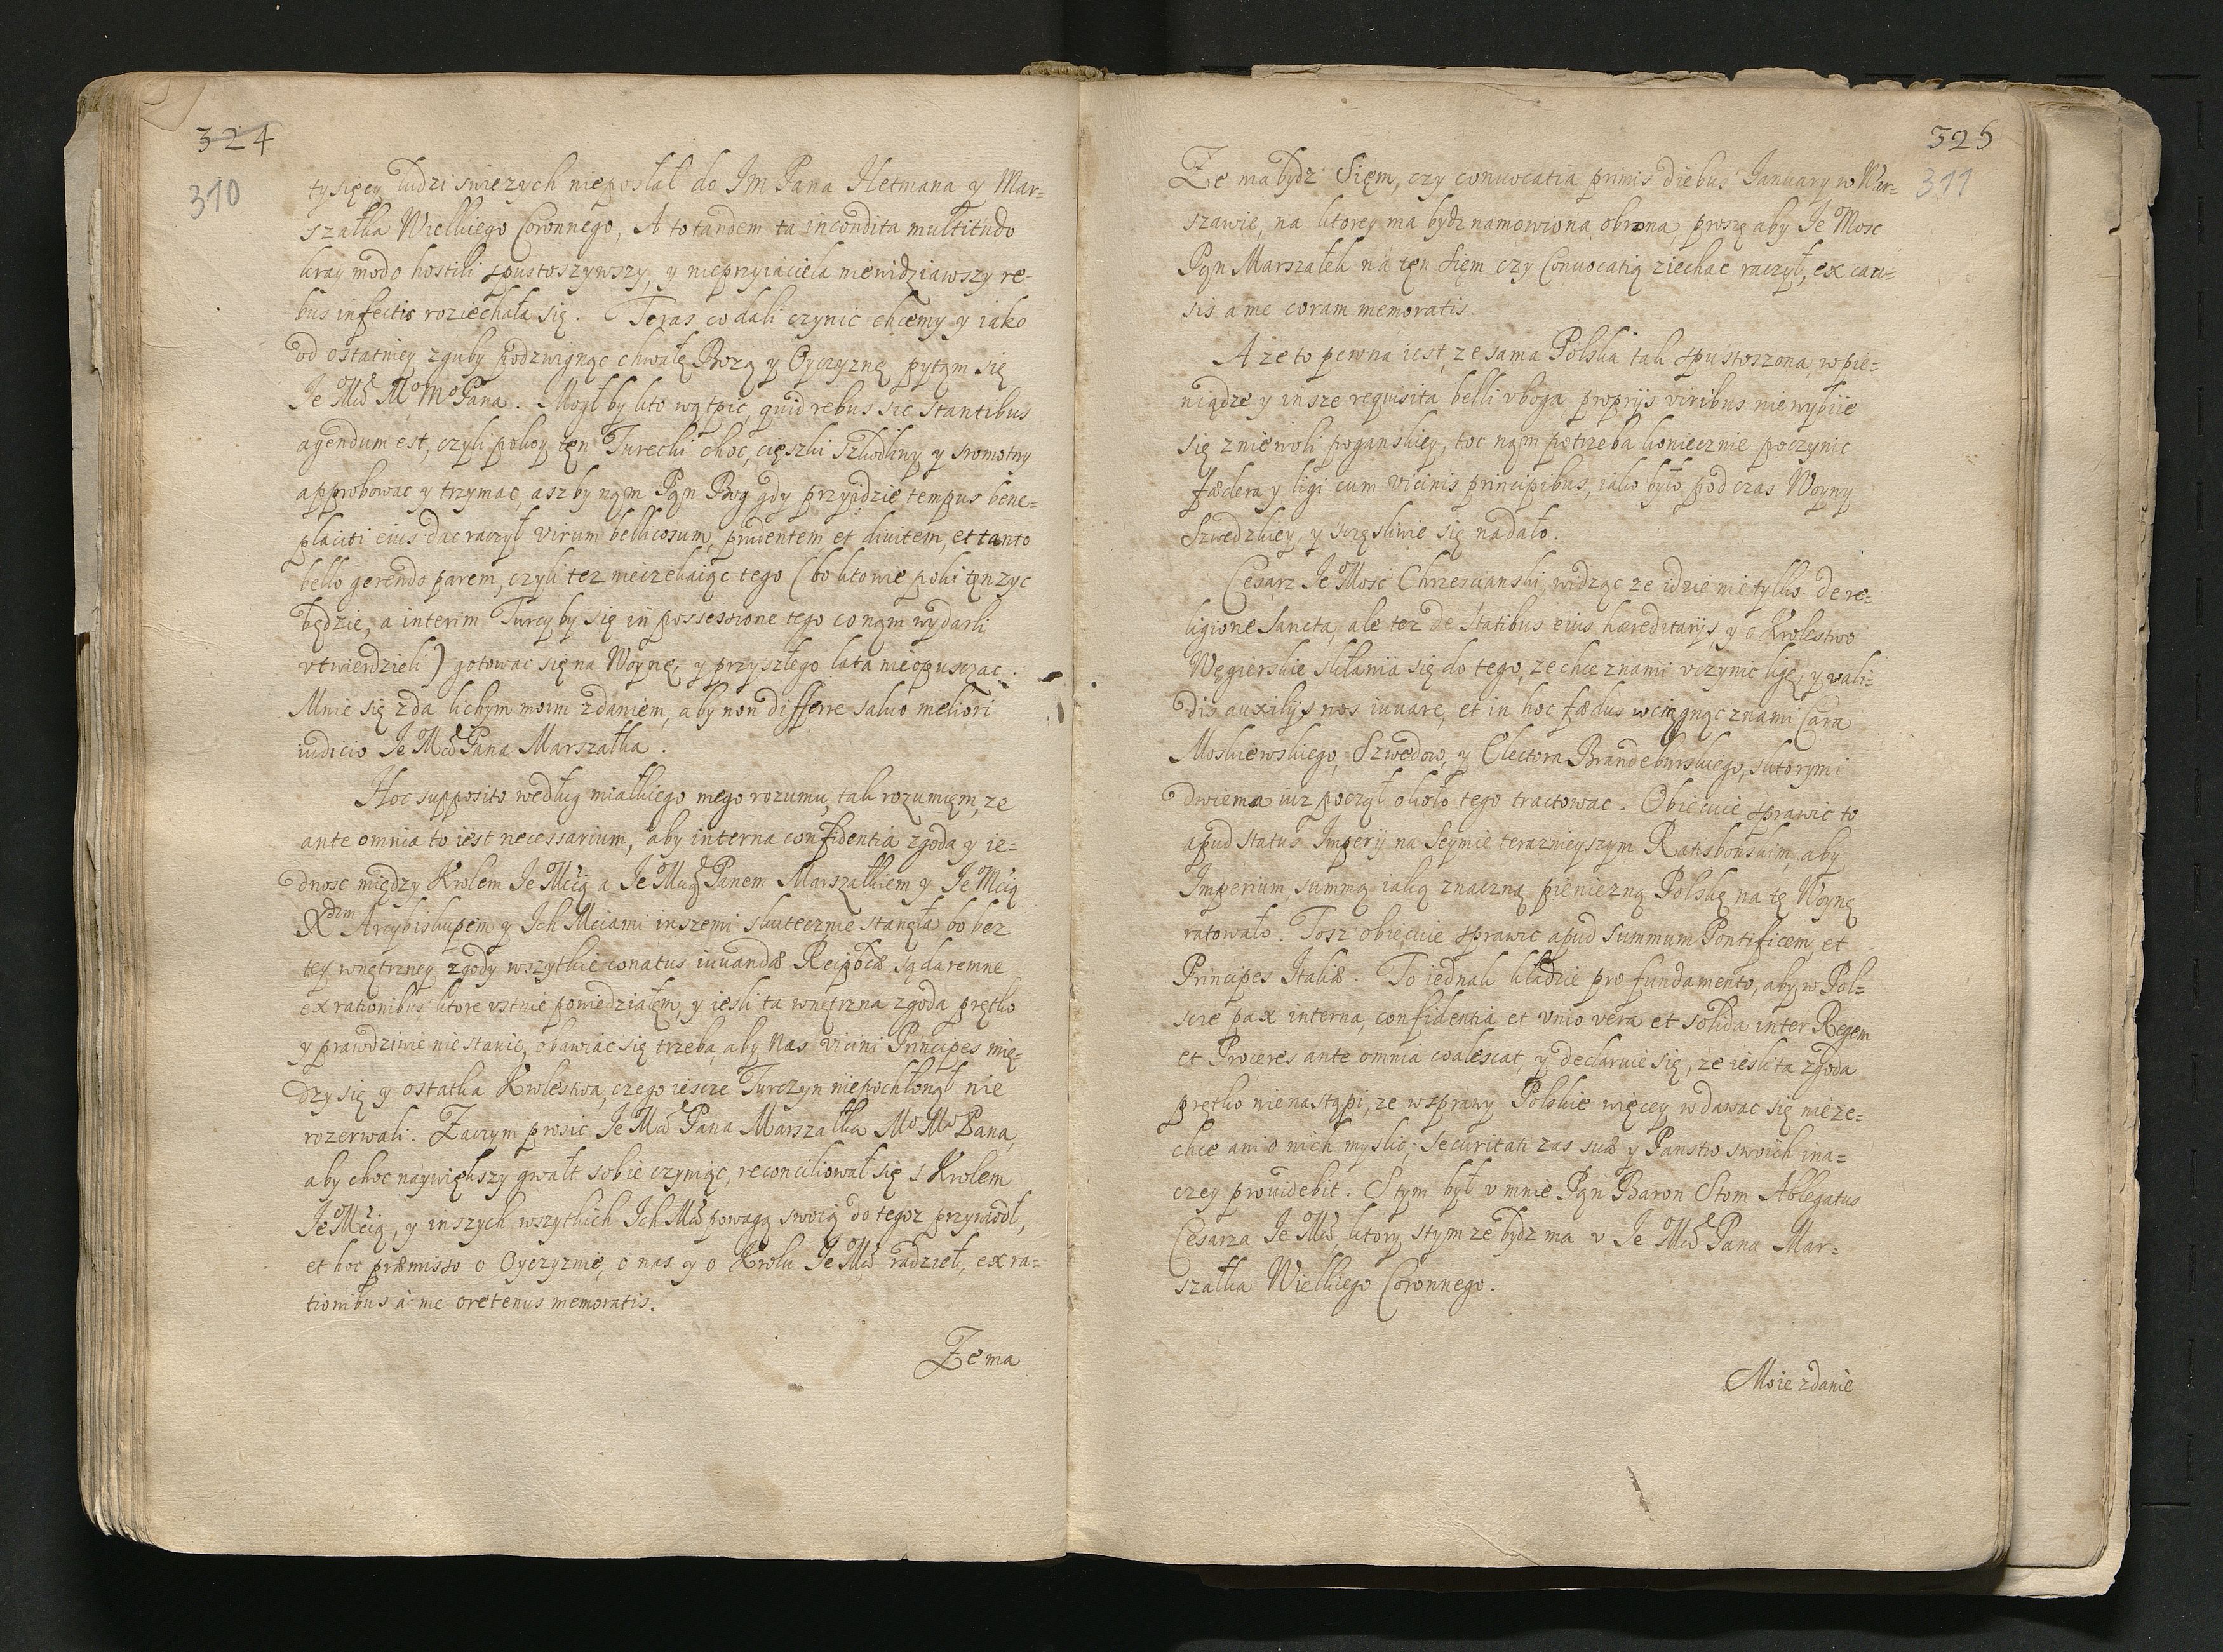 324
310
tysięcy ludzi swiezych nieposłał do Im Pana Hetmana y Mar=
szałka Wielkiego Coronnego, A to tandem ta incondita multitudo
kray modo hostili spustoszywszy, y nieprzyiaciela niewidziawszy re-
bus infectis roziechała się. Teras co dali czynic chcemy y iako
od ostatniey zguby podzwignąc chwałę Bozą y Oyczyznę pytąm się
Ie Mći Mo Mo Pana. Mogł by kto wątpic, quid rebus sic stantibus
agendum est, czyli pokoy tęn Turecki choc, cięszki szkodliwy y sromotny
approbowac y trzymac, asz by nąm Pąn Bog gdy przyidzie tempus bene=
placiti eius dac raczył virum bellicosum, prudentem et divitem, et tanto
bello gerendo parem, czyli tez nieczekaiąc tego (bo kto wie poki tęn zyc
będzie, a interim Turcy by się in possessione tego co nąm wydarli
vtwierdzieli) gotowac się na Woynę, y przyszłego lata nieopusczac.
Mnie się zda lichym moim zdaniem, aby non differre salvo meliori
iudicio Ie Mći Pana Marszałka.
Hoc supposito według miałkiego mego rozumu, tak rozumięm, ze
ante omnia to iest necessarium, aby interna confidentia zgoda y ie=
dnosc między Krolem Ie Mćią a Ie Mćią Panem Marszałkiem y Ie Mćią
Xdzm Arcybiskupem y Ich Mciami inszemi skutecznie stanęła, bo bez
tey wnętrzney zgody wszytkie conatus iuvandæ Reipbcæ są daremne
ex rationibus ktore vstnie powiedziałęm, y iesli ta wnętrzna zgoda prętko
y prawdziwie nie stanie, obawiac się trzeba, aby Nas vicini Principes mię=
dzy się y ostatka Krolestwa, czego iescze Turczyn niepochłonął nie
rozerwali. Zaczym prosic Ie Mći Pana Marszałka Mo Mo Pana,
aby choc naywiększy gwałt sobie czyniąc, reconciliował się s Krolem
Ie Mćią, y inszych wszytkich Ich Mći powagą swoią do tegoz przywiodł,
et hoc præmisso o Oyczyznie, o nas y o Krolu Ie Mći radzieł, ex ra=
tionibus à me oretenus memoratis.
Ze ma
325
311
Ze ma bydz Sięm, czy convocatia primis diebus Ianuary w War=
szawie, na ktorey ma bydz namowiona obrona, proszę aby Ie Mosc
Pąn Marszałek na tęn Sięm czy Convocatią ziechac raczył, ex cau=
sis a me coram memoratis.
A ze to pewna iest, ze sama Polska tak spustoszona, w pie=
niądze y insze requisita belli vboga proprijs viribus niewybiie
się z niewoli poganskiey, toc nąm potrzeba koniecznie poczynic
fædera y ligi cum vicinis principibus, iako było pod czas Woyny
Szwedzkiey, y sczęsliwie się nadało.
Cesarz Ie Mosć Chrzescianski, widząc ze idzie nie tylko de re=
ligione Sancta, ale tez de statibus eius hæreditarijs, y o Krolestwo
Węgierskie skłania się do tego, ze chce z nami vczynic ligę, y vali=
dis auxilijs nos iuvare, et in hoc fædus wciągnąc z nami Cara
Moskiewskiego, Szwedow, y Electora Brandeburskiego, s ktorymi
dwiema iuz począł około tego tractowac. Obiecuie sprawic to
apud status Imperij na Seymie terazniejszym Ratisbonskim, aby
Imperium, summą iaką znaczną pieniezną Polskę na tę Woynę
ratowało. Tosz obiecuie sprawic apud Summum Pontificem, et
Principes Italiæ. To iednak kładzie pro fundamento, aby w Pol=
scze pax interna, confidentia et vnio vera et solida inter Regem
et Proceres ante omnia coalescat, y declaruie się, ze iesli ta zgoda
prętko nienastąpi, ze w sprawy Polskie więcey wdawac się nieze=
chce ani o nich myslic; securitati zas suæ y Panstw swoich ina=
czey providebit. S tym był v mnie Pąn Baron Stom Ablegatus
Cesarza Ie Mći, ktory s tym ze bydz ma v Ie Mći Pana Mar=
szałka Wielkiego Coronnego.
Moie zdanie